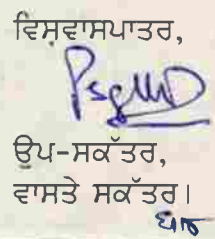 ਵਿਸ਼ਵਾਸਪਾਤਰ,
ਉਪ-ਸਕੱਤਰ,
ਵਾਸਤੇ ਸਕੱਤਰ।